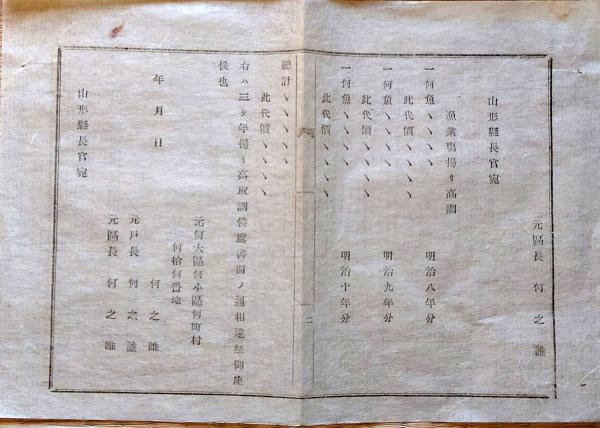 元區長 何之誰
山形縣長官宛
漁業場揚リ高調
一何魚ヽヽヽヽ 明治八年分
此代價ヽヽヽヽ
一何魚ヽヽヽヽ 明治九年分
此代價ヽヽヽヽ
一何魚ヽヽヽヽ 明治十年分
此代價ヽヽヽヽ
二
總計ヽヽヽヽヽ
此代價ヽヽヽヽ
右ハ三ケ年揚リ高取調候處書面ノ通相違無御座
候也
元何大區何小區何町村
何拾何番地
年月日 何之誰
元戸長 何之誰
元區長 何之誰
山形縣長官宛